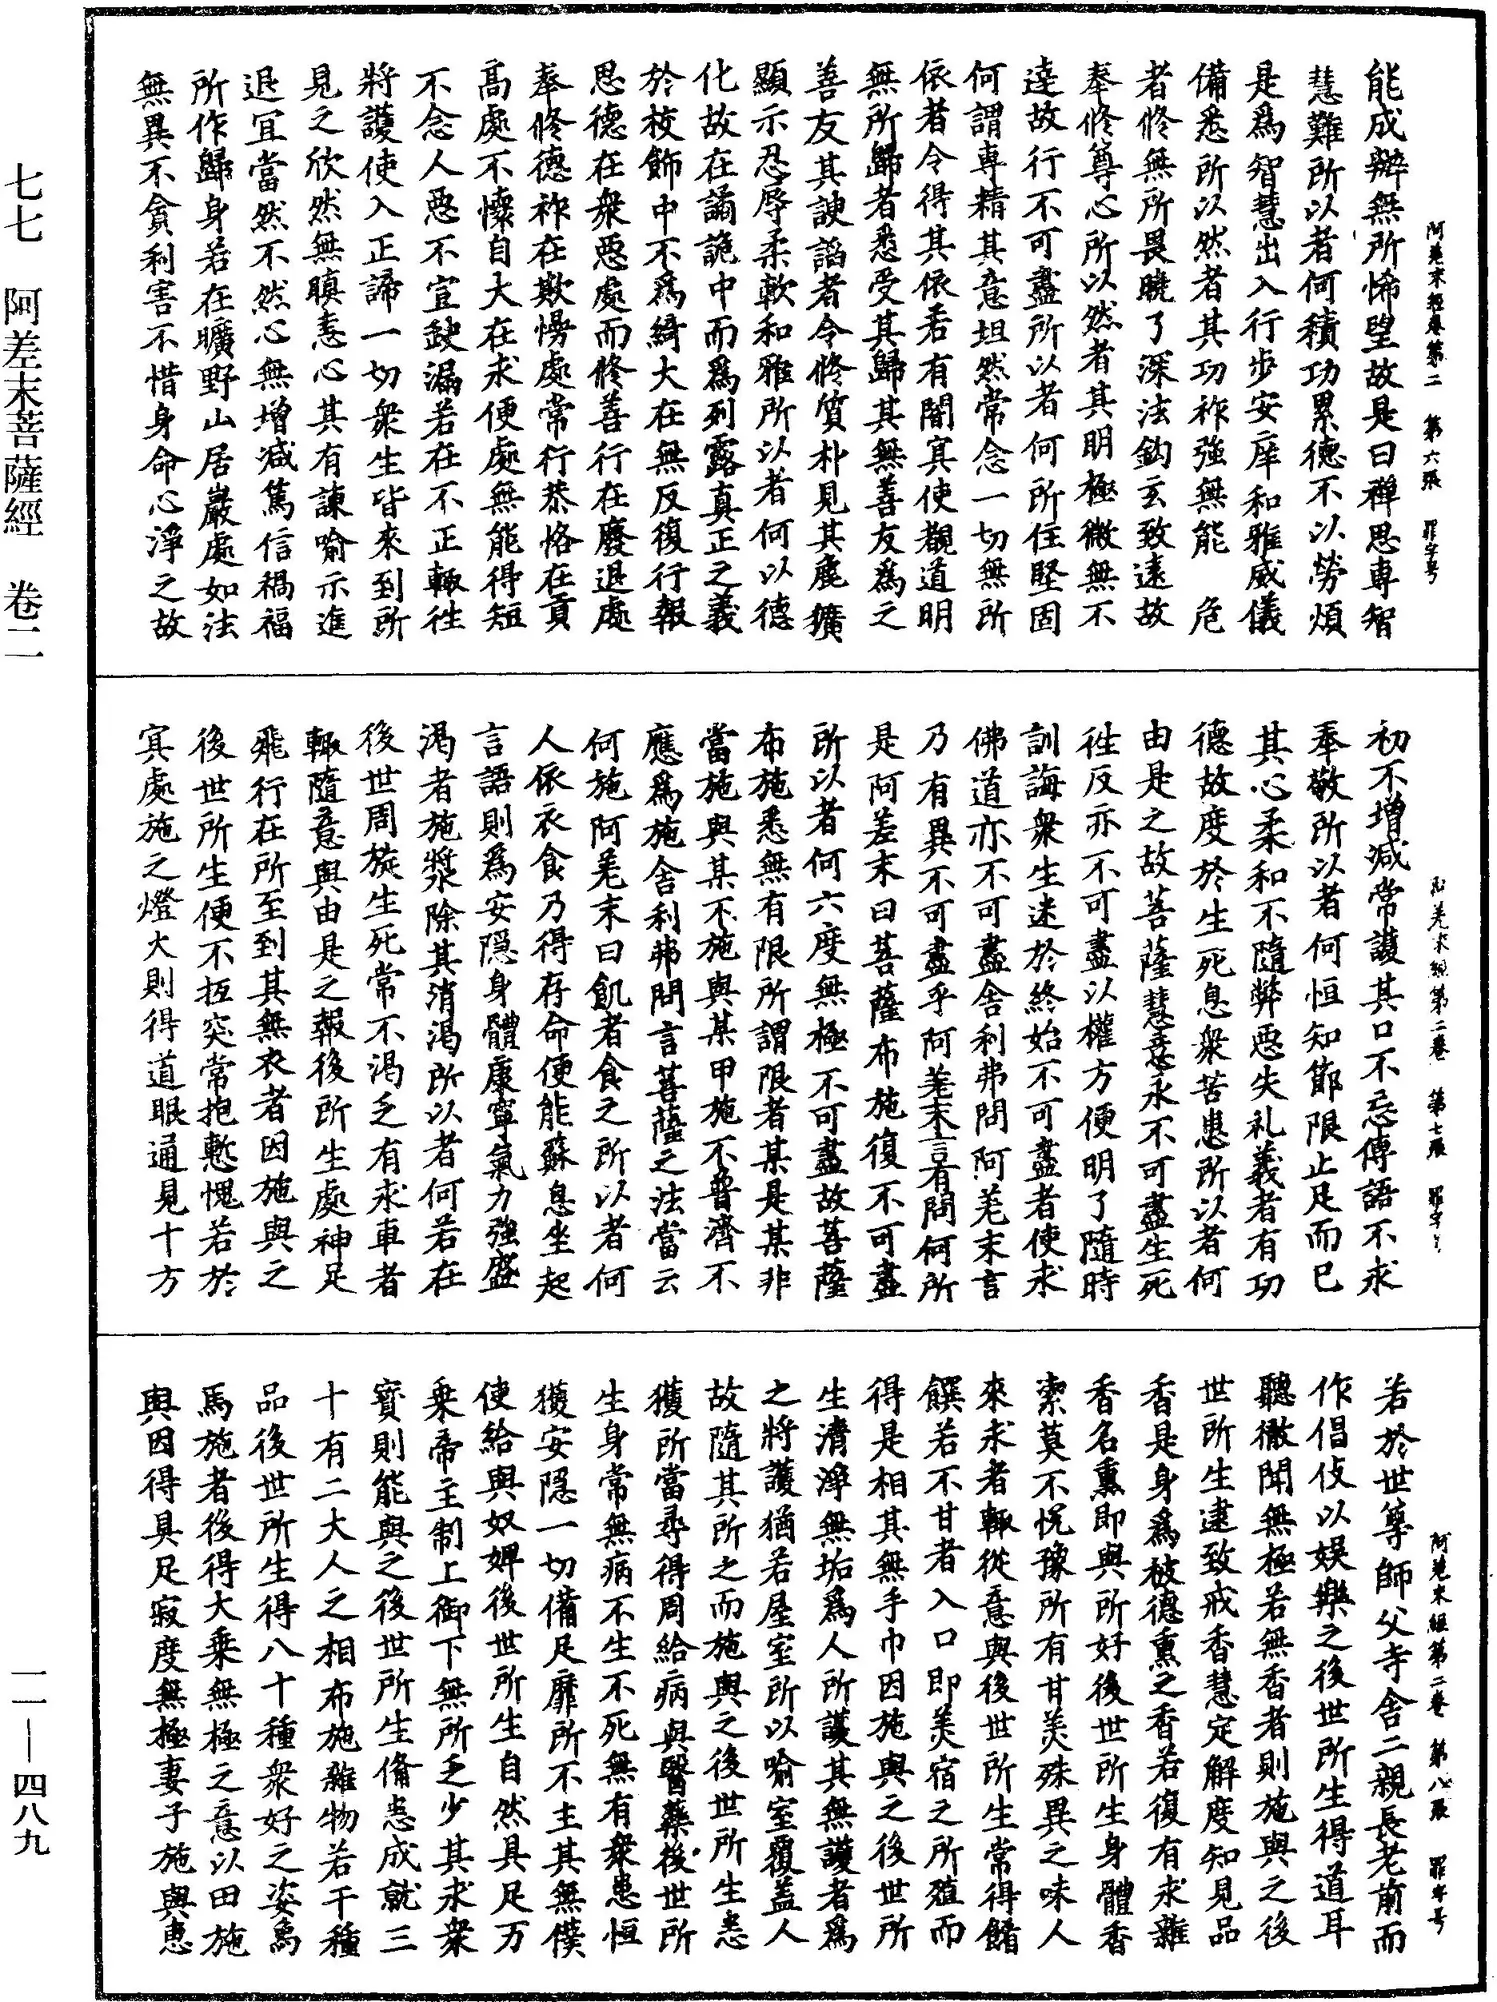 阿差末經卷第二　第六張　罪字号
能成辦無所悕望故是曰禪思專智
慧難所以者何積功累德不以勞煩
是爲智慧出入行步安庠和雅威儀
備悉所以然者其功祚強無能　危
者修無所畏曉了深法鈎玄致遠故
奉修尊心所以然者其明極微無不
達故行不可盡所以者何所住堅固
何謂專精其意坦然常念一切無所
依者令得其依若有闇冥使覩道明
無所歸者悉受其歸其無善友爲之
善友其諛諂者令修質朴見其麁獷
顯示忍辱柔軟和雅所以者何以德
化故在譎詭中而爲列露真正之義
於校飾中不爲綺大在無反復行報
恩德在衆惡處而修善行在廢退處
奉修德祚在欺慢處常行恭恪在貢
高處不懷自大在求便處無能得短
不念人惡不宜缺漏若在不正輙往
將護使入正諦一切衆生皆來到所
見之欣然無瞋恚心其有諫喻示進
退宜當然不然心無增減篤信禍福
所作歸身若在曠野山居巖處如法
無異不貪利害不惜身命心淨之故
阿差末經第二卷　第七張　罪字号
初不增減常護其口不忌傳語不求
奉敬所以者何恒知節限止足而已
其心柔和不隨弊惡失礼義者有功
德故度於生死息衆苦患所以者何
由是之故菩薩慧意永不可盡生死
往反亦不可盡以權方便明了隨時
訓誨衆生迷於終始不可盡者使求
佛道亦不可盡舍利弗問阿差末言
乃有異不可盡乎阿差末言有問何所
是阿差末曰菩薩布施復不可盡
所以者何六度無極不可盡故菩薩
布施悉無有限所謂限者某是某非
當施與某不施與某甲施不普濟不
應爲施舍利弗問言菩薩之法當云
何施阿差末曰飢者食之所以者何
人依衣食乃得存命便能蘇息坐起
言語則爲安隱身體康寧氣力強盛
渴者施漿除其消渴所以者何若在
後世周旋生死常不渴乏有求車者
輙隨意與由是之報後所生處神足
飛行在所至到其無衣者因施與之
後世所生便不抂突常抱慙愧若於
冥處施之燈火則得道眼通見十方
阿差末經第二卷　第八張　罪字号
若於世尊師父寺舍二親長老前而
作倡伎以娱樂之後世所生得道耳
聽徹聞無極若無香者則施與之後
世所生逮致戒香慧定解度知見品
香是身爲被德熏之香若復有求雜
香名熏即與所好後世所生身體香
潔莫不悅豫所有甘美殊異之味人
來求者輙從意與後世所生常得餚
饌若不甘者入口即美宿之所殖而
得是相其無手巾因施與之後世所
生清淨無垢爲人所護其無護者爲
之將護猶若屋室所以喻室覆蓋人
故隨其所之而施與之後世所生悉
獲所當尋得周給病與醫藥後世所
生身常無病不生不死無有衆患恒
獲安隱一切備足靡所不主其無僕
使給與奴婢後世所生自然具足万
乗帝主制上御下無所乏少其求衆
寶則能與之後世所生脩悉成就三
十有二大人之相布施雜物若干種
品後世所生得八十種衆好之姿爲
馬施者後得大乗無極之意以田施
與因得具足寂度無極妻子施與惠
七七　阿差末菩薩經　卷二
一一—四八九